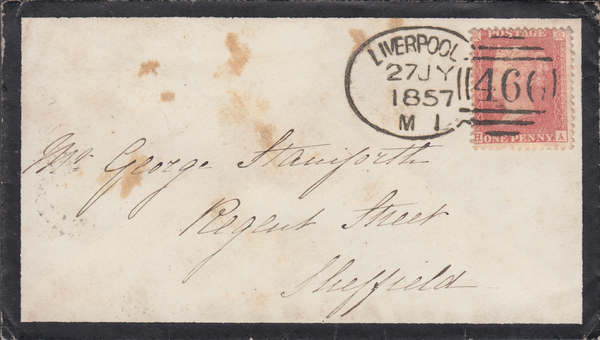 LIVERPOOL
27JY
1857
M L
466
POSTAGE
ONE PENNY
H A
Mrs George Staniforth
Regent Street
Sheffield